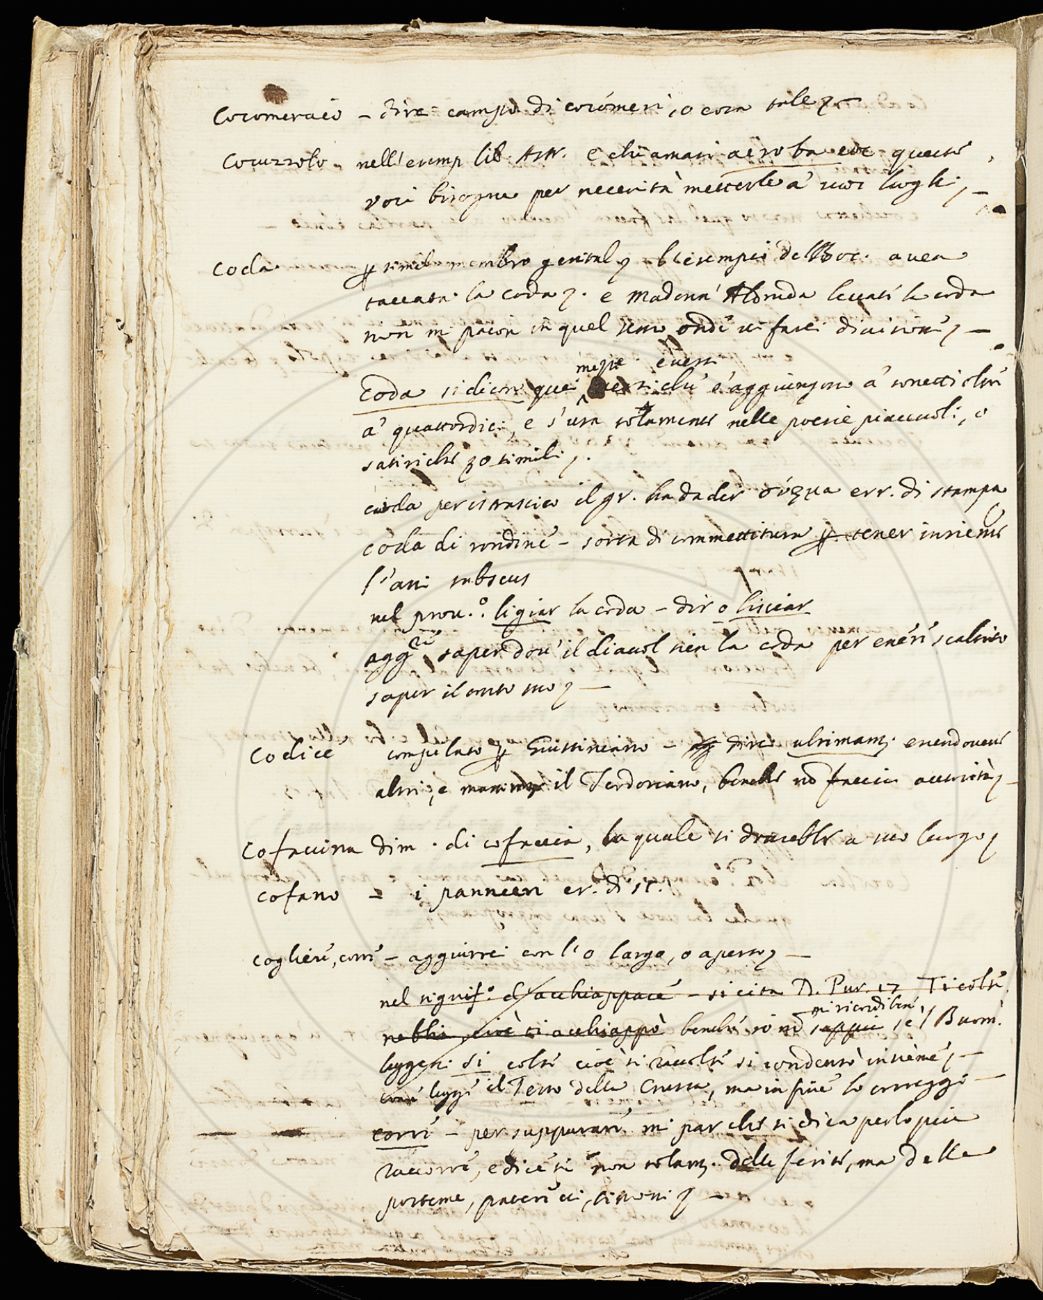 Cocomeraio – dire campo di cocomeri, o cosa tale
Cocuzzolo nell'esemp. lib. Astr. e chiamasi queste
voci bisogna per necessità metterle a' suoi luoghi –
Coda membro genital esempi del Boc. avea
taccata la coda. e Madonna levati la coda
non mi piacea in quel divisione –
mezzi e versi
Coda si dicono quei che s'aggiungono a' sonetti oltre
a' quattordici, e s'usa solamente nelle poesie piacevoli, o
satiriche o simili.
coda per istrascico il gr. ha da dir err. di stampa
coda di rondine – sorta di commettitura p. tener insieme
l'assi subscus
nel prov.o ligiar la coda – dir o lisciar
agg. saper dov' il diavol tien la coda per esser scaltrito
saper il conto suo –
Codice compilato p. Giustiniano – dire ultimam. essendovene
altri, e massime il Teodosiano, benche no faccia autorità –
Cofaccina dim. di cofaccia, la quale si dovrebbe a suo luogo
cofano – i pannieri er. di st.
cogliere, corre – aggiugnerei con l'o largo, o aperto –
nel signif.o d'acchiappare – si cita D. Pur. 17 Ti colse
mi ricordi bene
nebbia, cioè ti acchiappò benche io no seppia se 'l Buom.
leggessi si colse cioè si raccolse si condensò insieme –
come leggi il Testo della Crusca, ma in fine lo corregge –
corre – per suppurare mi par che si dica perlopiù
raccorre, e dicesi non solam. delle ferite, ma delle
posteme, patericci, ciccioni –